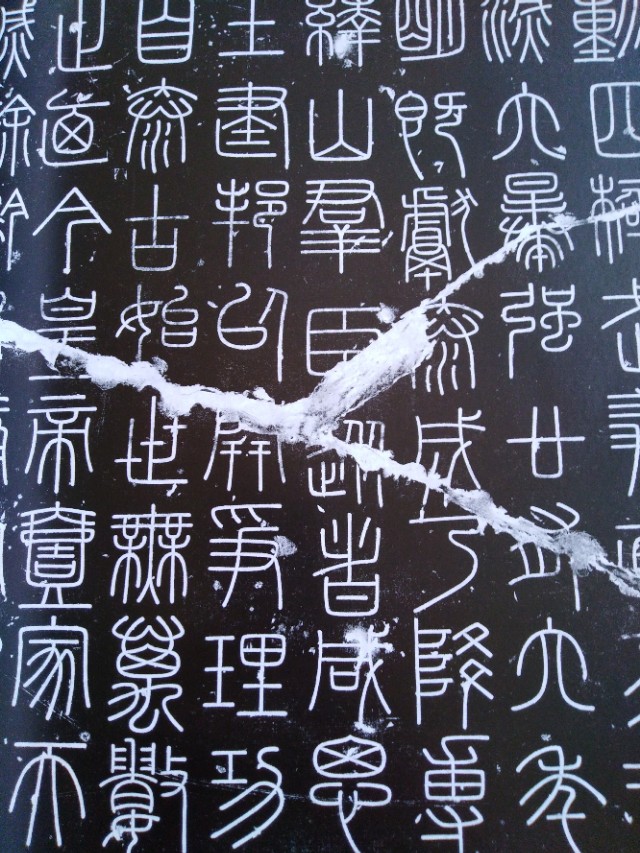 動四極武
滅六暴強廿有六年
明既獻泰成乃降專
繹山羣臣從者咸思
土建邦以開爭理功
自泰古始世無萬數
止迺今皇帝壹家天